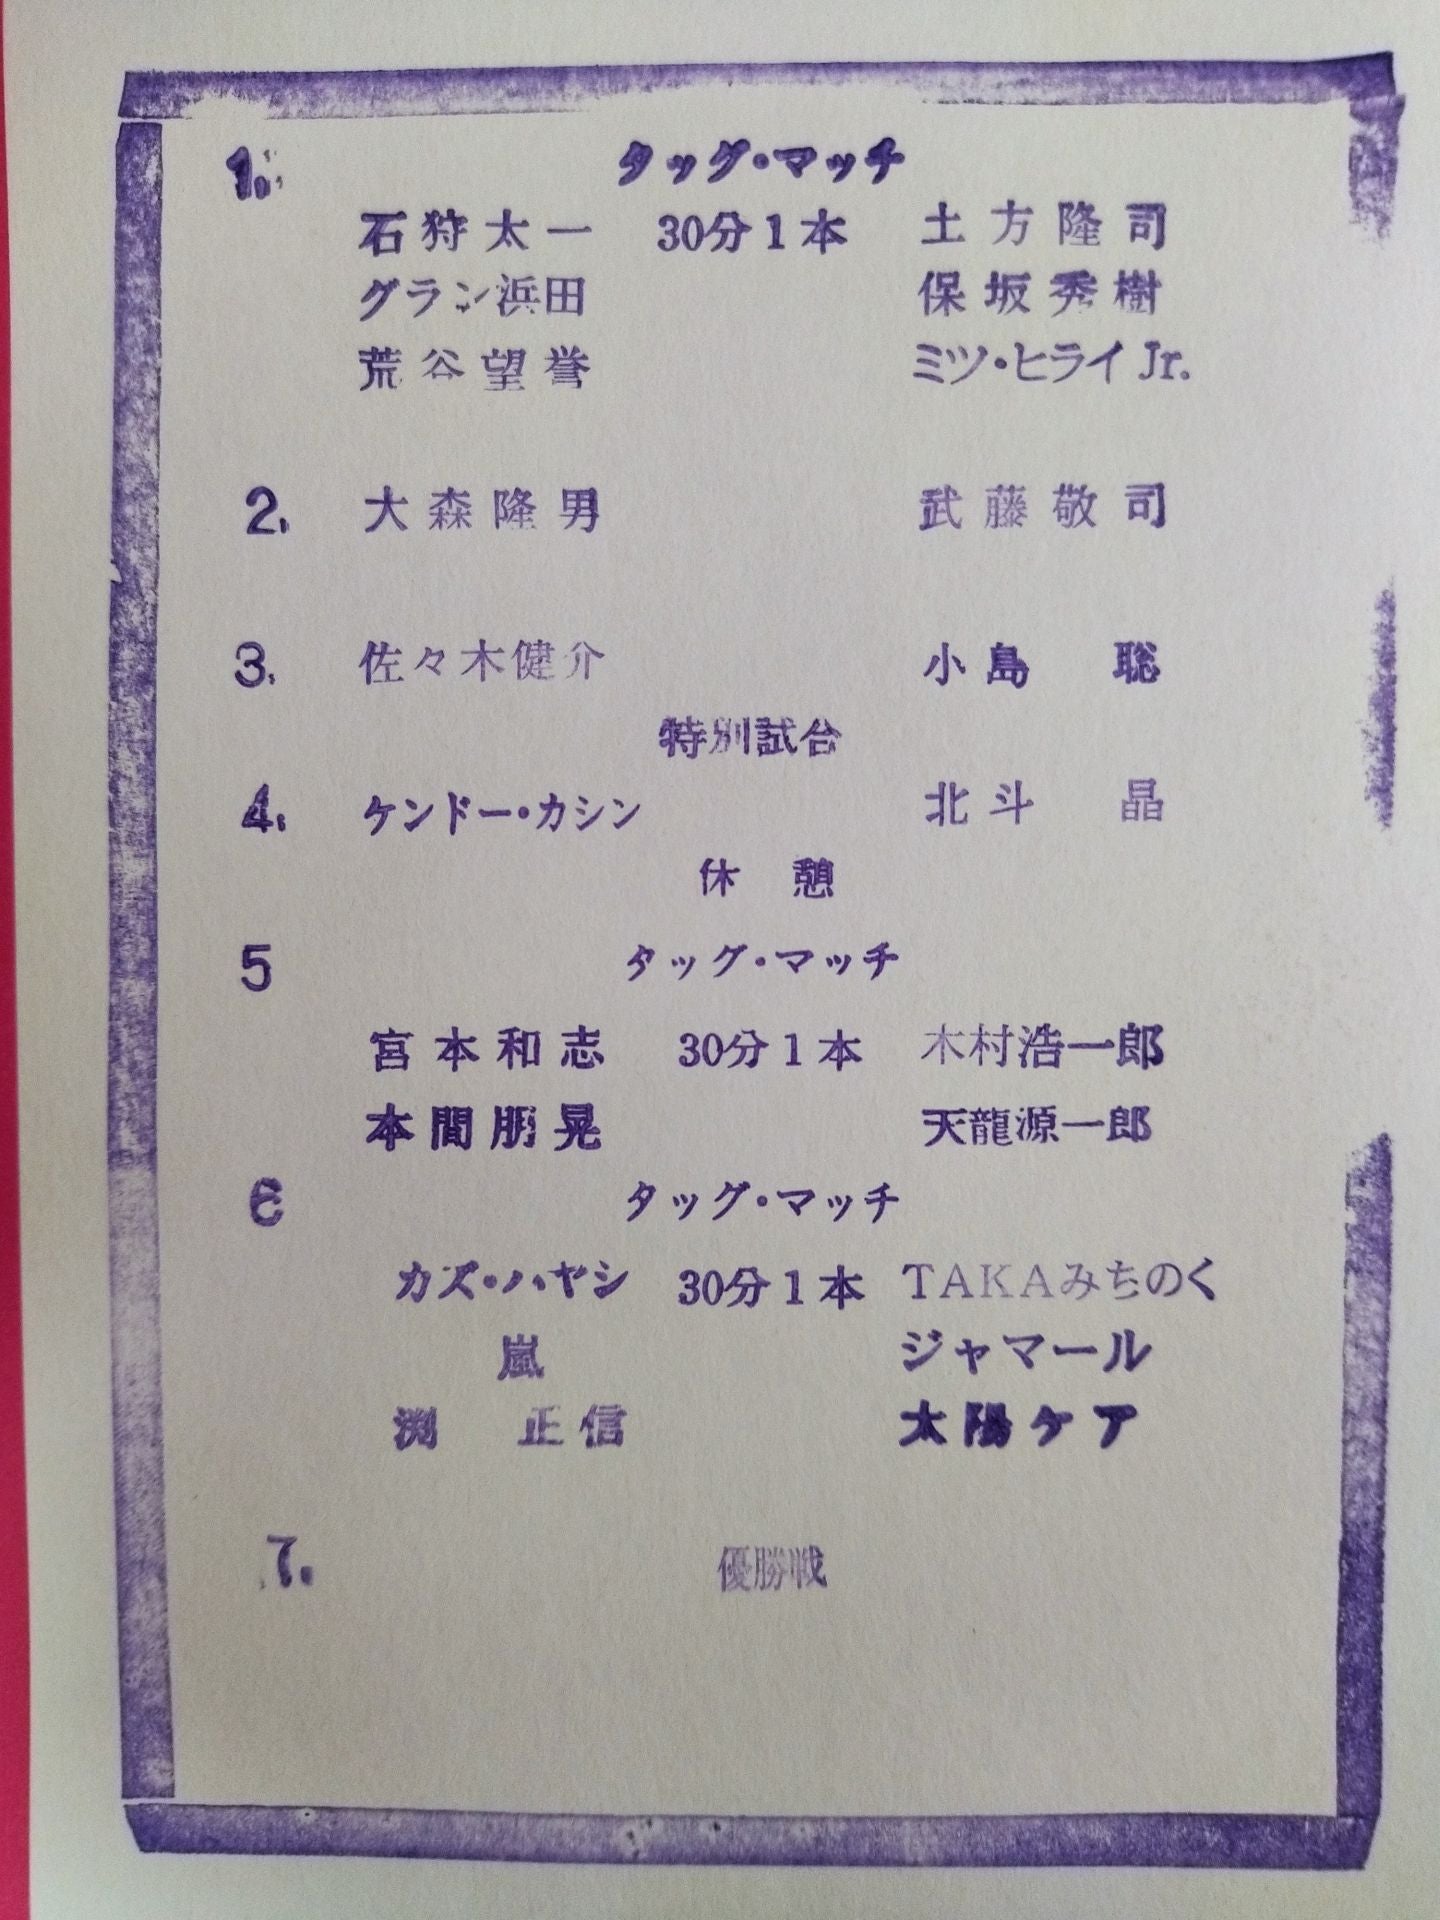 1. タッグ・マッチ
石狩太一 30分1本 土方隆司
グラン浜田 保坂秀樹
荒谷望誉 ミツ・ヒライJr.
2. 大森隆男 武藤敬司
3. 佐々木健介 小島 聡
特別試合
4. ケンドー・カシン 北斗 晶
休憩
5 タッグ・マッチ
宮本和志 30分1本 木村浩一郎
本間朋晃 天龍源一郎
6 タッグ・マッチ
カズ・ハヤシ 30分1本 TAKAみちのく
嵐 ジャマール
渕 正信 太陽ケア
7. 優勝戦